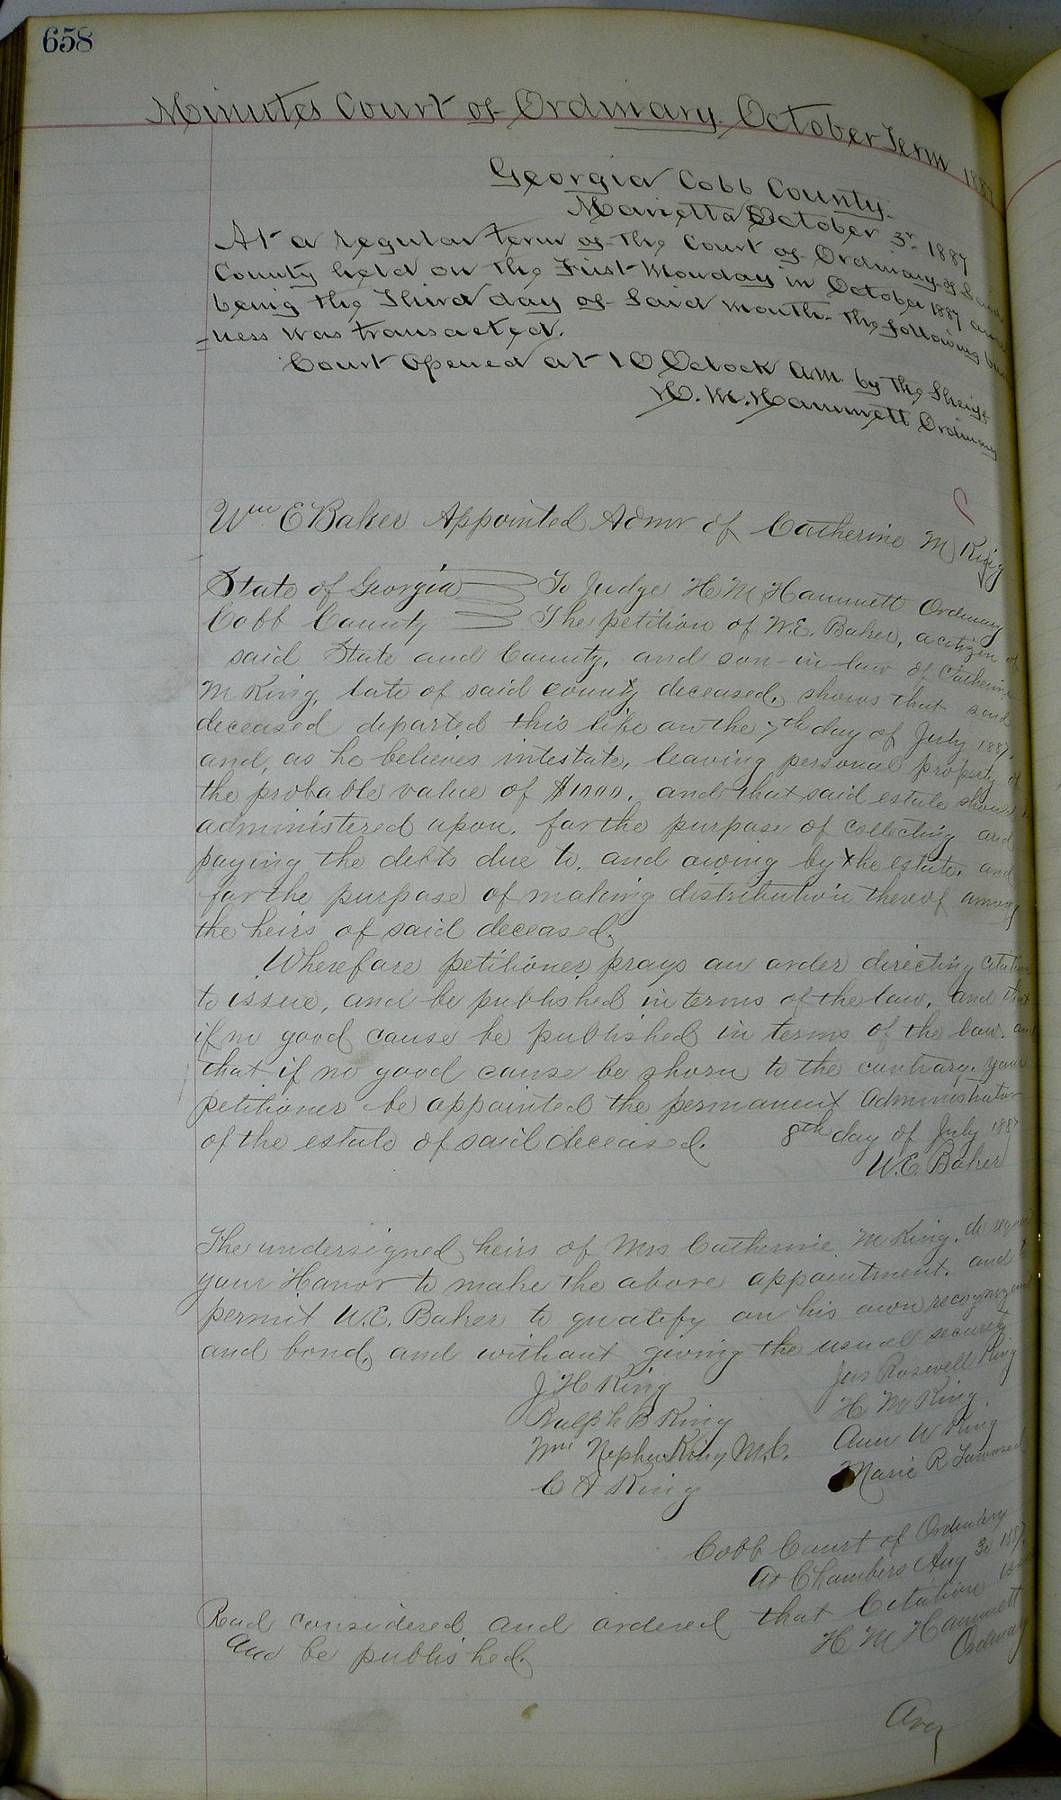 658
Minutes Court of Ordinary October Term 1887
Georgia Cobb County.
Marietta October 3r 1887
At a regular term of the Court of Ordinary of Said
County held on the First Monday in October 1887 and
being the Third day of Said Month. The following busi
=ness was transacted.
Court Opened at 10 Oclock A.M. by the Sheriff
H. M. Hammett Ordinary
Wm E Baker Appointed Admr of Catherine M King
State of Georgia To Judge H M Hammett Ordinary
Cobb County The petition of W.E. Baker, a citizen of
said State and County, and son-in-law of Catherine
M King, late of said county deceased, shows that said
deceased departed this life on the 7th day of July 1887,
and, as he believes intestate, leaving personal property of
the probable value of $1000. and that said estate should
administered upon. for the purpose of collecting and
paying the debts due to, and owing by the estate. and
for the purpose of making distribution thereof among
the heirs of said deceased.
Wherefore petitioner prays an order directing citation
to issue, and be published in terms of the law, and that
if no good cause be published in terms of the law. and
that if no good cause be shorn to the contrary. your
petitioner be appointed the permanent administrator
of the estate of said deceased. 8th day of July 1887
W.E. Baker
The undersigned heirs of Mrs Catherine M King. do request
your Honor to make the above appointment. and to
permit W.E. Baker to qualify on his own recognizance
and bond, and without giving the usual security
J H King Jas Roswell King
Ralph B King H M King.
Wm Nephew King M.C. Ann W King
C A King Marie R
Cobb Court of Ordinary
At Chambers Aug 3r 1887.
Read considered and ordered that Citation issue
and be published. H M Hammett
Ordinary